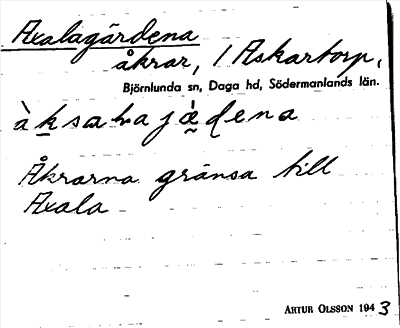 Axalagärdena
åkrar, / Askartorp,
Björnlunda sn, Daga hd, Södermanlands län.
Åkrarna gränsa till
Axala
ARTUR OLSSON 1943